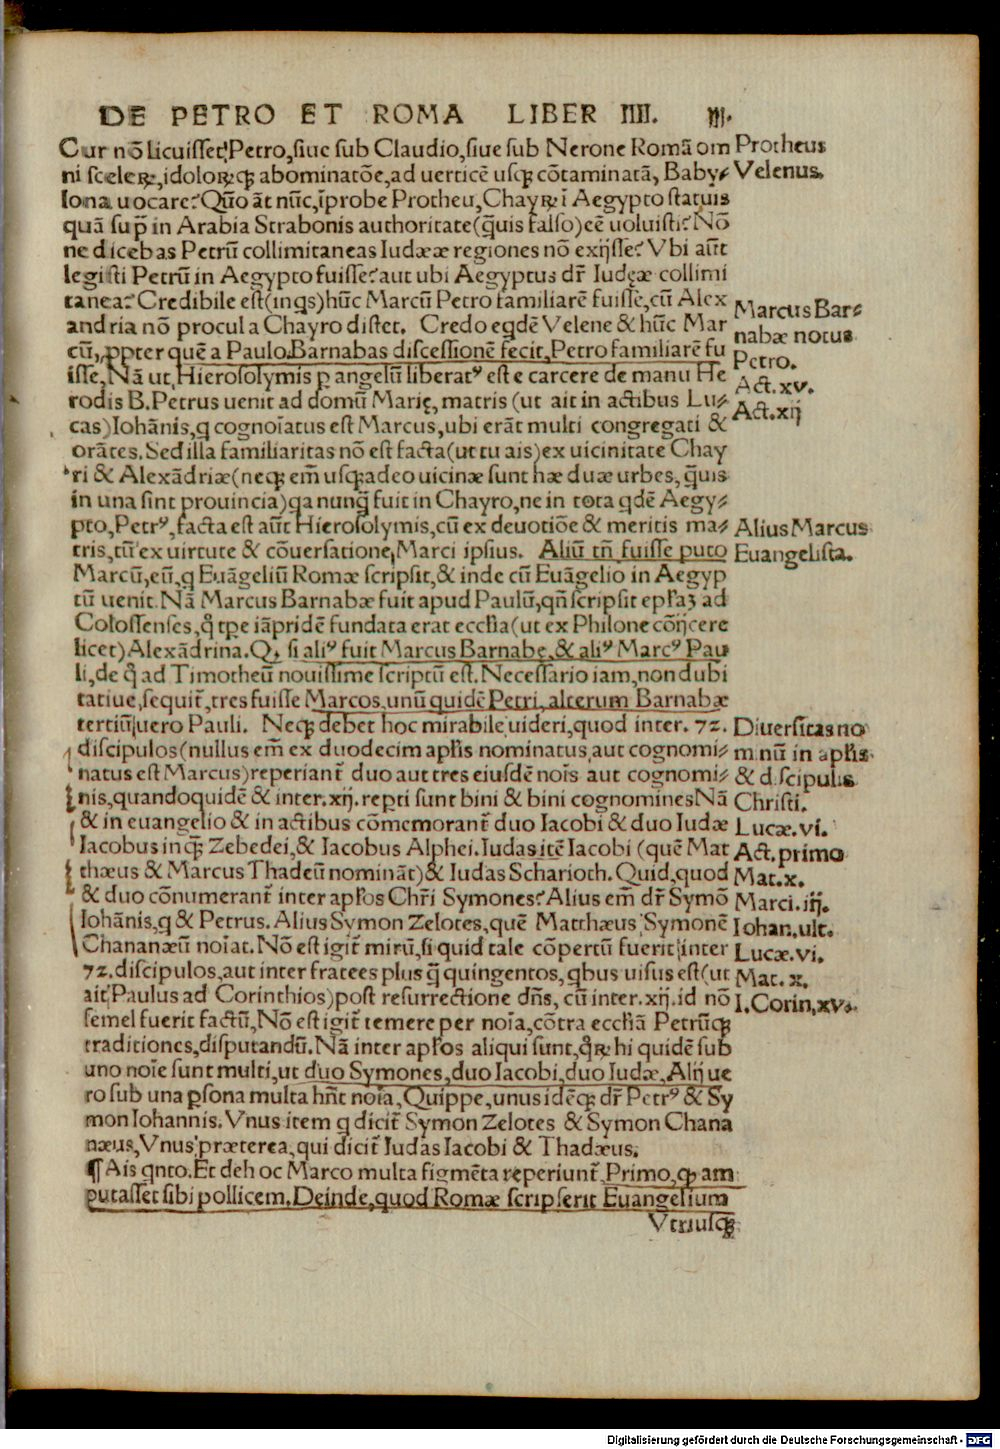 DE PETRO ET ROMA LIBER IIII. III.
Cur nō licuisset Petro, siue sub Claudio, siue sub Nerone Romā om
ni sceleꝝ, idoloꝝqꝫ abominatōe, ad uerticē usqꝫ cōtaminatā, Baby⸗
lona uocare? Qūo āt nūc, īprobe Protheu, Chayꝝ ī Aegypto statuis
quā sup̄ in Arabia Strabonis authoritate (q̄uis falso) eē uoluisti? Nō
ne dicebas Petrū collimitaneas Iudææ regiones nō exijsse? Vbi aūt
legisti Petrū in Aegypto fuisse? aut ubi Aegyptus dr̄ Iudęæ collimi
tanea? Credibile est (inqs) hūc Marcū Petro familiarē fuisse, cū Alex
andria nō procul a Chayro distet. Credo eqdē Velene & hūc Mar
cū, ꝓpter quē a Paulo Barnabas discessionē fecit, Petro familiarē fu
isse, Nā ut Hierosolymis p angelū liberatꝰ est e carcere de manu He
rodis B. Petrus uenit ad domū Marię, matris (ut ait in actibus Lu⸗
cas) Iohānis, q cognoīatus est Marcus, ubi erāt multi congregati &
orātes. Sed illa familiaritas nō est facta (ut tu ais) ex uicinitate Chay
ri & Alexādriæ (neqꝫ em̄ usqꝫadeo uicinæ sunt hæ duæ urbes, q̄uis
in una sint prouincia) qa nunq̄ fuit in Chayro, ne in tota qdē Aegy⸗
pto, Petrꝰ, facta est aūt Hierosolymis, cū ex deuotiōe & meritis ma⸗
tris, tū ex uirtute & cōuersatione, Marci ipsius. Aliū tn̄ fuisse puto
Marcū, eū, q Euāgeliū Romæ scripsit, & inde cū Euāgelio in Aegyp
tū uenit. Nā Marcus Barnabæ fuit apud Paulū, qn̄ scripsit ep̄l'aꝫ ad
Colossenses, q̄ tp̄e iāpridē fundata erat eccl'ia (ut ex Philone cōijcere
licet) Alexādrina. Q, si aliꝰ fuit Marcus Barnabę, & aliꝰ Marcꝰ Pau
li, de q̄ ad Timotheū nouissime scriptū est. Necessario iam, non dubi
tatiue, sequit̄, tres fuisse Marcos, unū quidē Petri, alterum Barnabæ
tertiū uero Pauli. Neqꝫ debet hoc mirabile uideri, quod inter. 72.
discipulos (nullus em̄ ex duodecim apl'is nominatus aut cognomi⸗
natus est Marcus) reperiant̄ duo aut tres eiusdē noīs aut cognomi⸗
nis, quandoquidē & inter. xij. repti sunt bini & bini cognomines Nā
& in euangelio & in actibus cōmemorant̄ duo Iacobi & duo Iudæ
Iacobus inqꝫ Zebedei, & Iacobus Alphei. Iudas itē Iacobi (quē Mat
thæus & Marcus Thadeū nomināt) & Iudas Scharioth. Quid, quod
& duo cōnumerant̄ inter apl'os Chr̄i Symones? Alius em̄ dr̄ Symō
Iohānis, q & Petrus. Alius Symon Zelotes, quē Matthæus Symonē
Chananæū noīat. Nō est igit̄ mirū, si quid tale cōpertū fuerit inter
72. discipulos, aut inter fratees plus q̄ quingentos, qbus uisus est (ut
ait Paulus ad Corinthios) post resurrectione dn̄s, cū inter. xij. id nō
semel fuerit factū, Nō est igit̄ temere per noīa, cōtra eccl'iā Petrūqꝫ
traditiones, disputandū. Nā inter apl'os aliqui sunt, q̄ꝝ hi quidē sub
uno noīe sunt multi, ut duo Symones, duo Iacobi, duo Iudæ, Alij ue
ro sub una psona multa hn̄t noīa, Quippe, unus idēqꝫ dr̄ Petrꝰ & Sy
mon Iohannis. Vnus item q dicit̄ Symon Zelotes & Symon Chana
næus, Vnus præterea, qui dicit̄ Iudas Iacobi & Thadæus.
¶ Ais qnto. Et de hoc Marco multa figmēta reperiunt̄. Primo, ꝙ am
putasset sibi pollicem. Deinde, quod Romæ scripserit Euangelium
Vtriusqꝫ
Protheus
Velenus.
Marcus Bar⸗
nabæ notus
Petro.
Act. xv.
Act. xij
Alius Marcus
Euangelista.
Diuersitas no
minū in apl'is
& discipulis
Christi.
Lucæ. vi.
Act. primo
Mat. x.
Marci. iij.
Iohan. ult.
Lucæ. vi.
Mat. x.
I. Corin, xv.
Digitalisierung gefördert durch die Deutsche Forschungsgemeinschaft - DFG